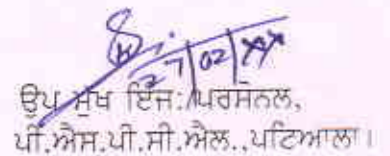 27/02/XX
ਉਪ ਮੁੱਖ ਇੰਜ:/ਪਰਸੋਨਲ,
ਪੀ.ਐਸ.ਪੀ.ਸੀ.ਐਲ.,ਪਟਿਆਲਾ।